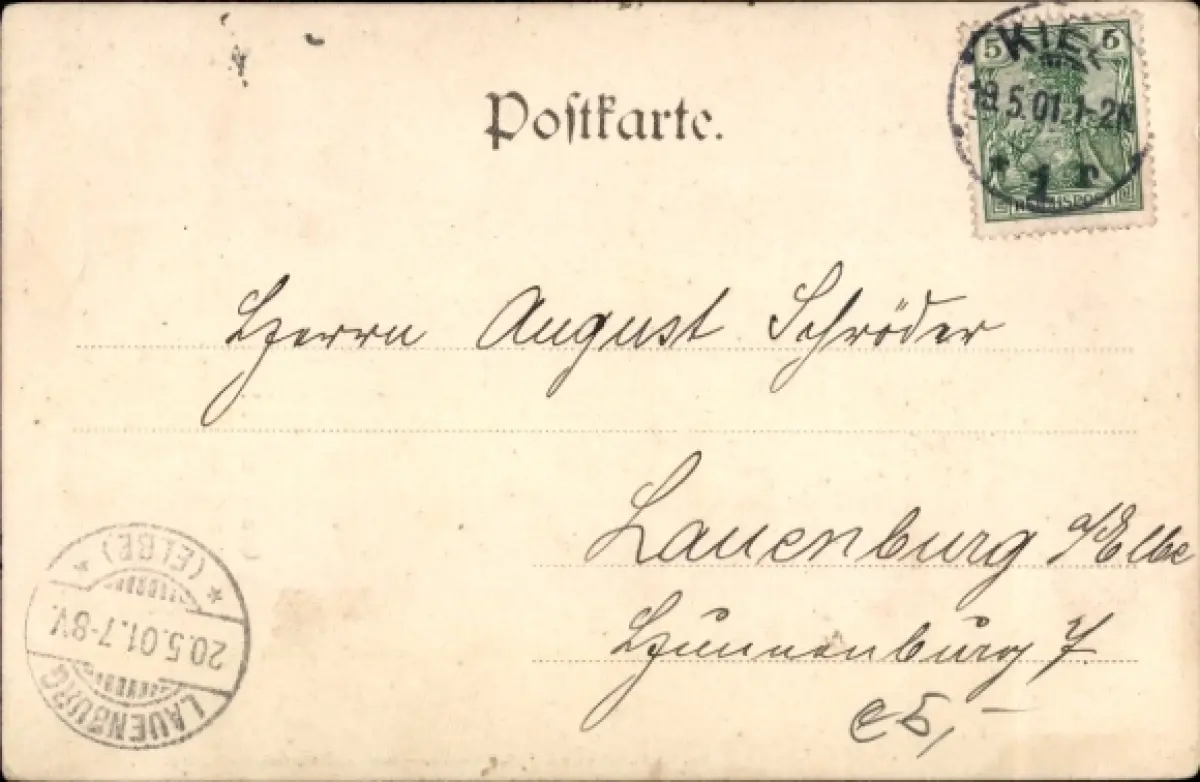 Postkarte.
5 5
KIEL
19.5.01.1-2N
* 1 r
REICHSPOST
Herrn August Schröder
Lauenburg a/Elbe
Hunnenburg 7
e 5,-
* (ELBE) *
20.5.01.7-8V.
LAUENBURG